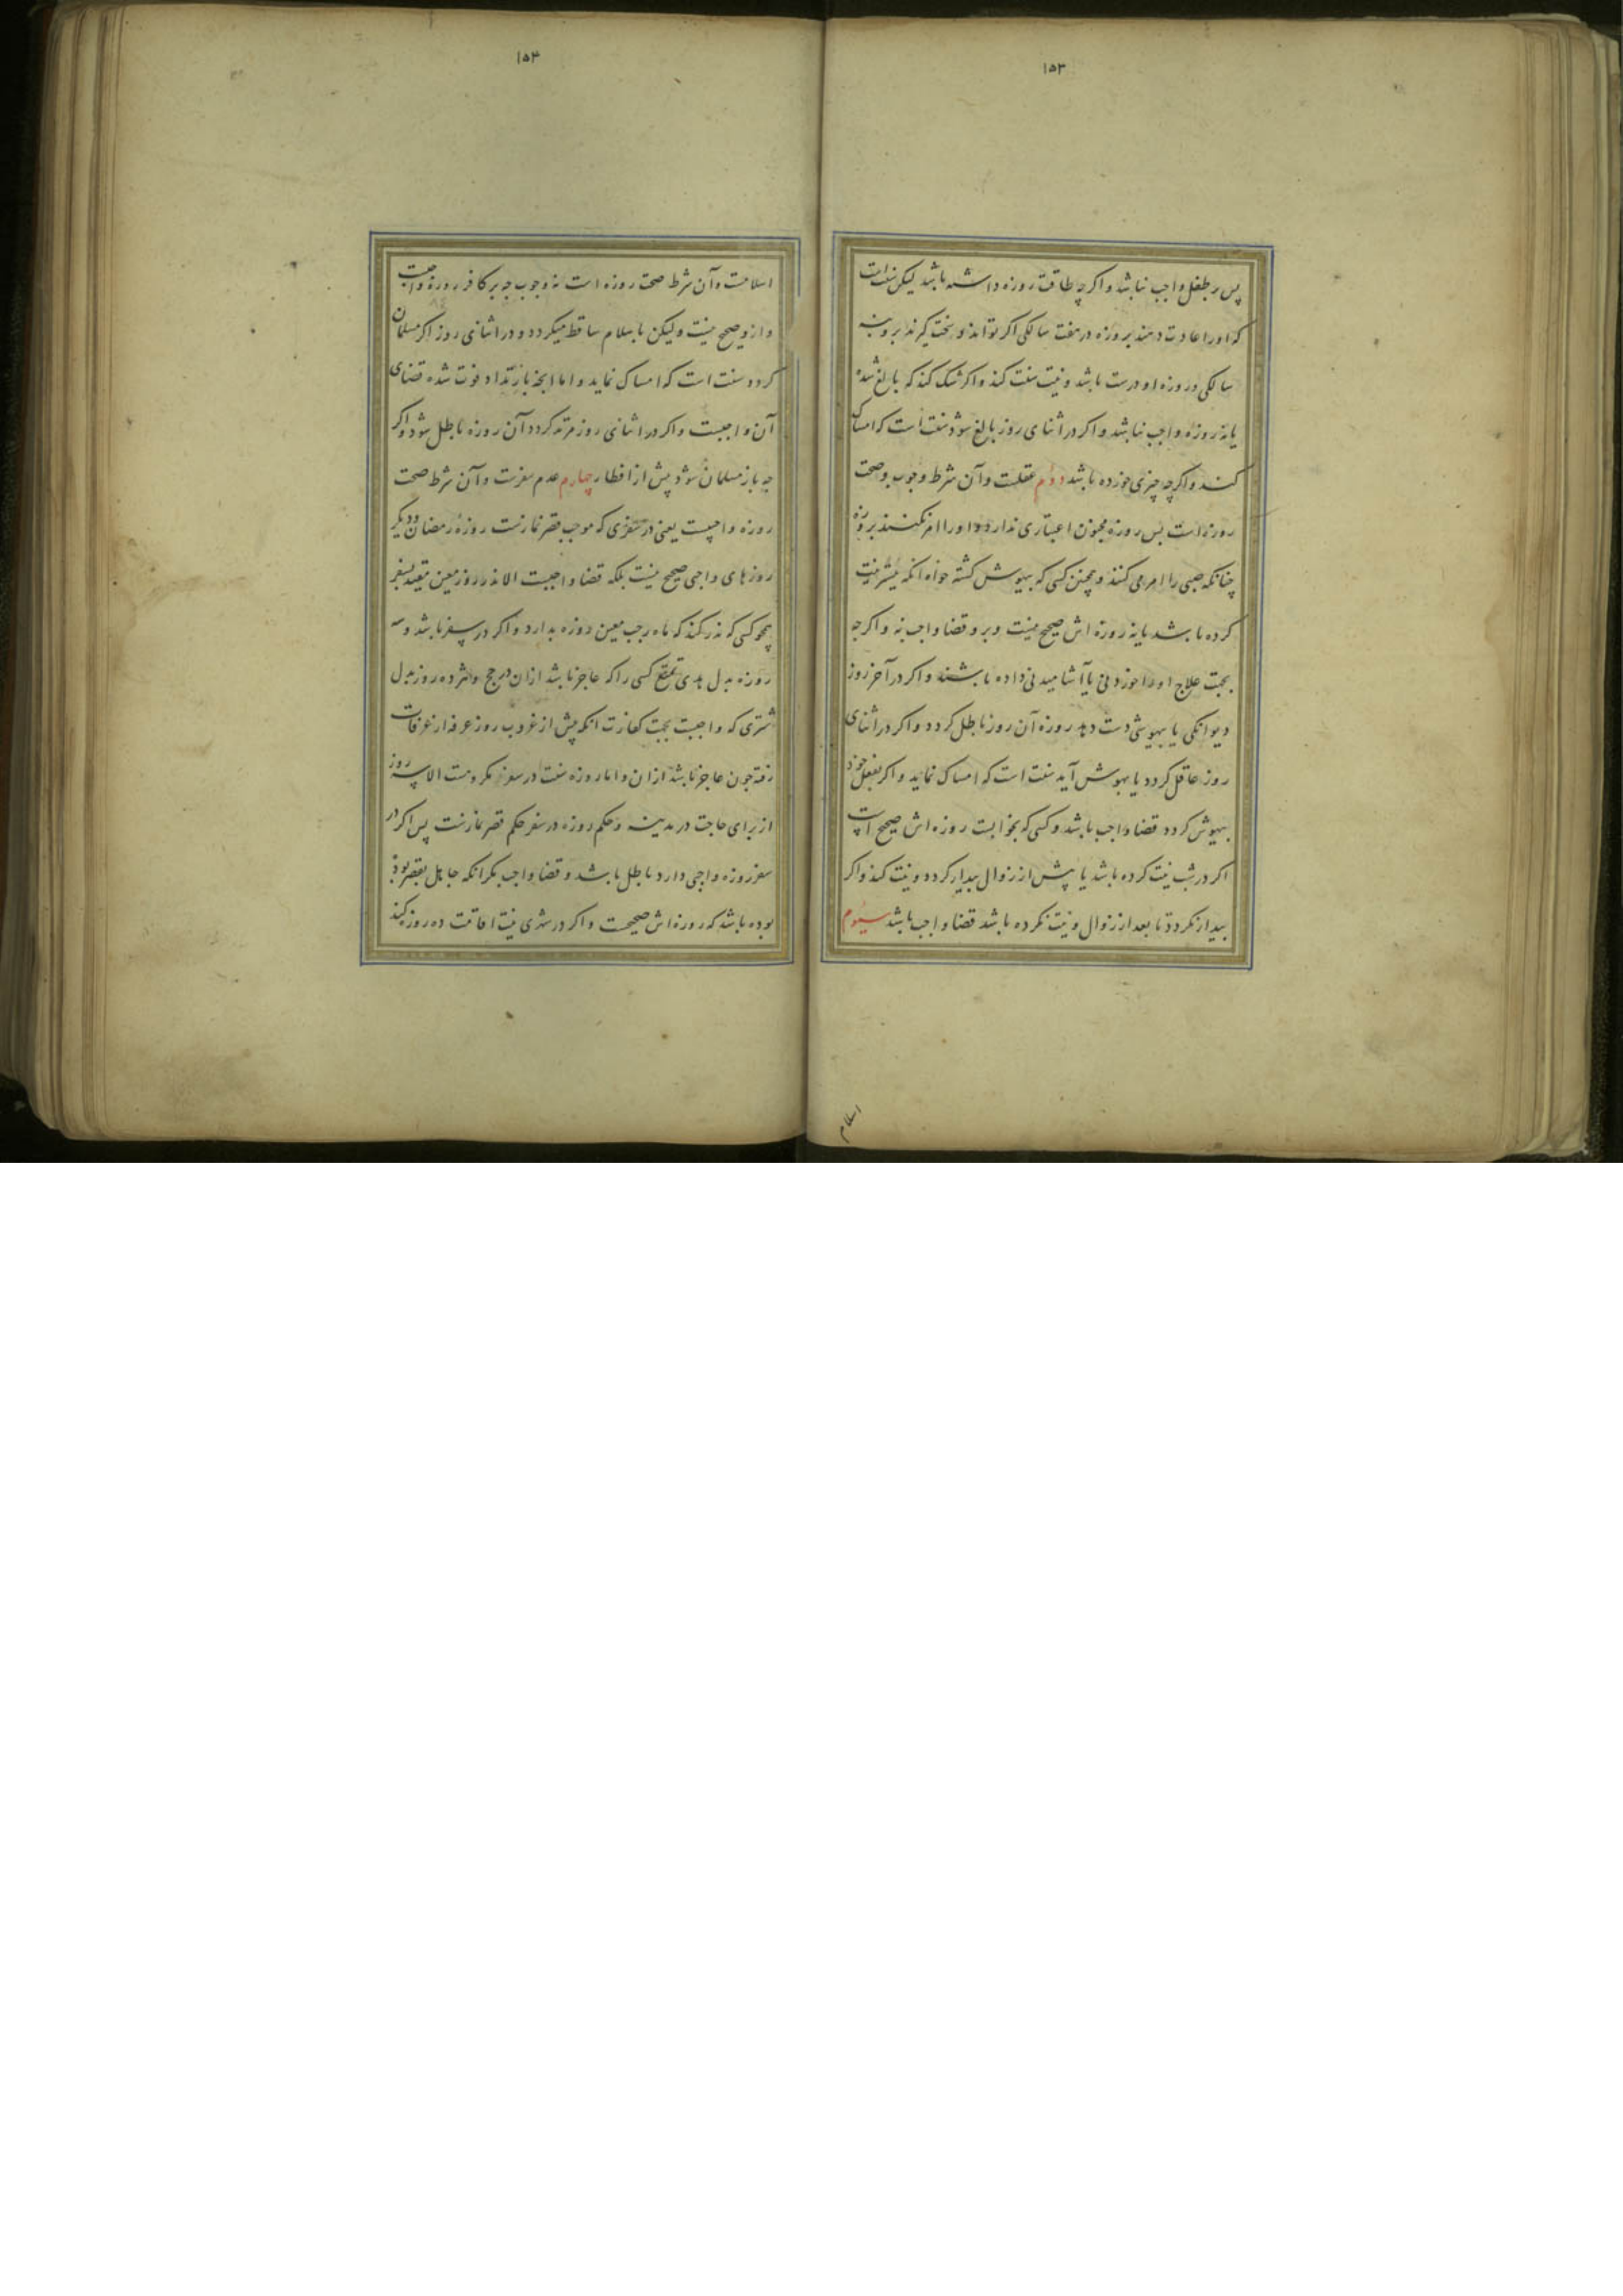 ۱۵۳
پس بر طفل واجب نباشد و اکر چه طاقت روزه داشته باشد لیکن سنت است
که اورا عادت دهند بروزه در هفت سالکی اکر تواند و سخت کیرند برو در نه
سالکی و روزه او درست باشد و نیت سنت کند و اکر شک کند که بالغ شده
یا نه روزه واجب نباشد و اکر در اثنای روز بالغ شود سنت است که امساک
کند و اکر چه چیزی خورده باشد دوم عقلست و آن شرط وجوب و صحت
روزه است پس روزه مجنون اعتباری ندارد و اورا امر نکنند بروزه
چنانکه صبی را امر می کنند و همچنین کسی که بیهوش کشته خواه انکه پیشتر نیت
کرده باشد یا نه روزه اش صحیح نیست و برو قضا واجب نه و اکر چه
بجهت علاج اورا خوردنی یا آشامیدنی داده باشند و اکر در آخر روز
دیوانکی یا بیهوشی دست دهد روزه آن روز باطل کردد و اکر در اثنای
روز عاقل کردد یا بهوش آید سنت است که امساک نماید و اکر بفعل خود
بیهوش کردد قضا واجب باشد و کسی که بخوابست روزه اش صحیح است
اکر در شب نیت کرده باشد یا پیش از زوال بیدار کردد و نیت کند و اکر
بیدار نکردد تا بعد از زوال و نیت نکرده باشد قضا واجب باشد سیوم
اسلام
۱۵۴
اسلامست و آن شرط صحت روزه است نه وجوب چه بر کافر روزه واجبست
و ازو صحیح نیست ولیکن باسلام ساقط میکردد و در اثنای روز اکر مسلمان
کردد سنت است که امساک نماید و اما انچه بارتداد فوت شده قضای
آن واجبست و اکر در اثنای روز مرتد کردد آن روزه باطل شود و اکر
چه باز مسلمان شود پیش از افطار چهارم عدم سفرست و آن شرط صحت
روزه واجبست یعنی در سفری که موجب قصر نمازست روزه رمضان و دیکر
روزهای واجبی صحیح نیست بلکه قضا واجبست الا نذر روز معین مقید بسفر
همچو کسی که نذر کند که ماه رجب معین روزه بدارد و اکر در سفر باشد و سه
روزه بدل هدی تمتع کسی را که عاجز باشد ازان در حج و هژده روز بدل
شتری که واجبست بجهت کفارت انکه پیش از غروب روز عرفه از عرفات
رفته چون عاجز باشد ازان و اما روزه سنت در سفر مکروهست الا سه روز
از برای حاجت در مدینه و حکم روزه در سفر حکم قصر نمازست پس اکر در
سفر روزه واجبی دارد باطل باشد و قضا واجب مکر انکه جاهل بقصر
بوده باشد که روزه اش صحیحست و اکر در شهری نیت اقامت ده روز کند